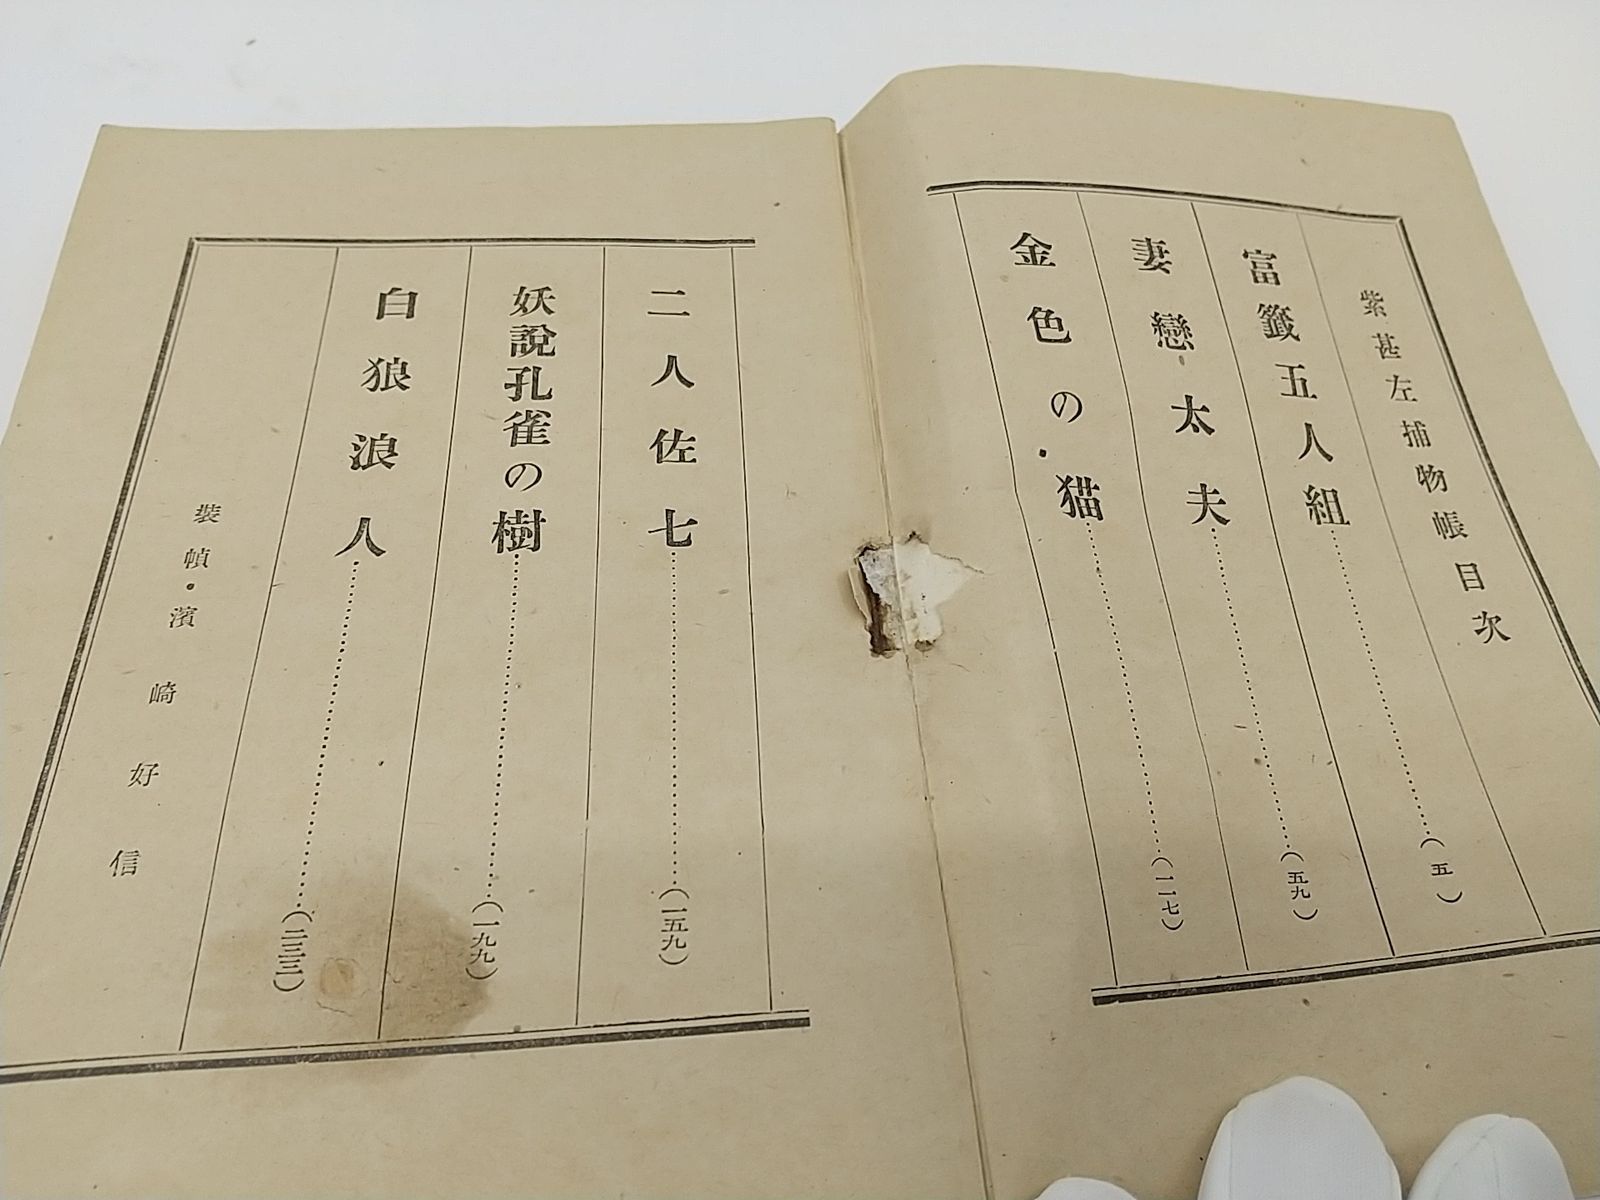 紫甚左捕物帳目次
富籤五人組…………(五)
妻戀太夫…………(五九)
金色の猫…………(一一七)
二人佐七…………(一五九)
妖說孔雀の樹…………(一九九)
白狼浪人…………(二三三)
裝幀・濱崎好信